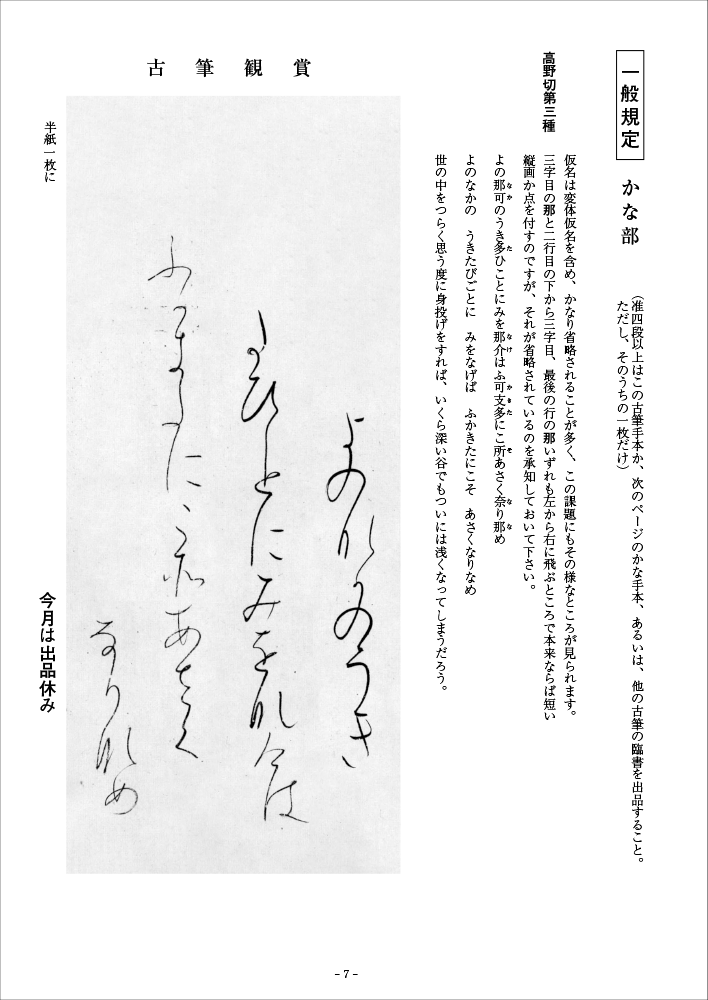 一般規定
かな部
（准四段以上はこの古筆手本か、次のページのかな手本、あるいは、他の古筆の臨書を出品すること。
ただし、そのうちの一枚だけ）
高野切第三種
仮名は変体仮名を含め、かなり省略されることが多く、この課題にもその様なところが見られます。
三字目の那と二行目の下から三字目、最後の行の那いずれも左から右に飛ぶところで本来ならば短い
縦画か点を付すのですが、それが省略されているのを承知しておいて下さい。
よの那可のうき多ひことにみを那介はふ可支多にこ所あさく奈り那め
なか
た
なけ
かきた
そ
な
な
よのなかの　うきたびごとに　みをなげば　ふかきたにこそ　あさくなりなめ
世の中をつらく思う度に身投げをすれば、いくら深い谷でもついには浅くなってしまうだろう。
古筆観賞
よの那可のうき
多ひことにみを那介は
ふ可支多にこ所あさく
奈り那め
半紙一枚に
今月は出品休み
- 7 -